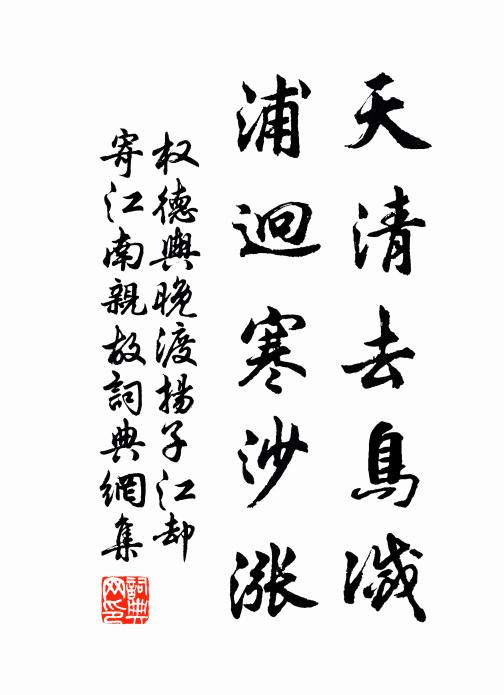 天清去鳥滅
浦迥寒沙漲
权德輿晚渡揚子江却
寄江南親故詞典網集
詞典
网印